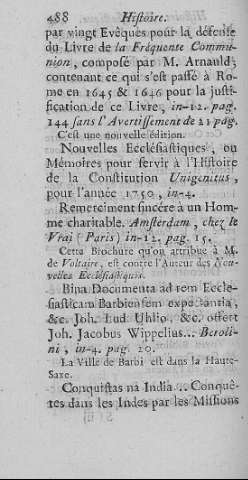 488 Histoire.
par vingt Evêques pour la défense
du Livre de la Fréquente Commu-
nion, composé par M. Arnauld;
contenant ce qui s'est passé à Ro-
me en 1645 & 1646 pour la justi-
fication de ce Livre, in-12. pag.
144 sans l'Avertissement de 21 pag.
C'est une nouvelle édition.
Nouvelles Ecclésiastiques, ou
Mémoires pour servir à l'Histoire
de la Constitution Unigenitus,
pour l'année 1750, in-4.
Remerciment sincère à un Hom-
me charitable. Amsterdam, chez le
Vrai (Paris) in-12. pag. 15.
Cette Brochure qu'on attribue à M.
de Voltaire, est contre l'Auteur des Nou-
velles Ecclésiastiques.
Bina Documenta ad rem Eccle-
siasticam Barbiensem expectantia,
&c. Joh. Lud. Uhlio, &c. offert
Joh. Jacobus Wippelius... Beroli-
ni, in-4. pag. 20.
La Ville de Barbi est dans la Haute-
Saxe.
Conquistas na India... Conquê-
tes dans les Indes par les Missions